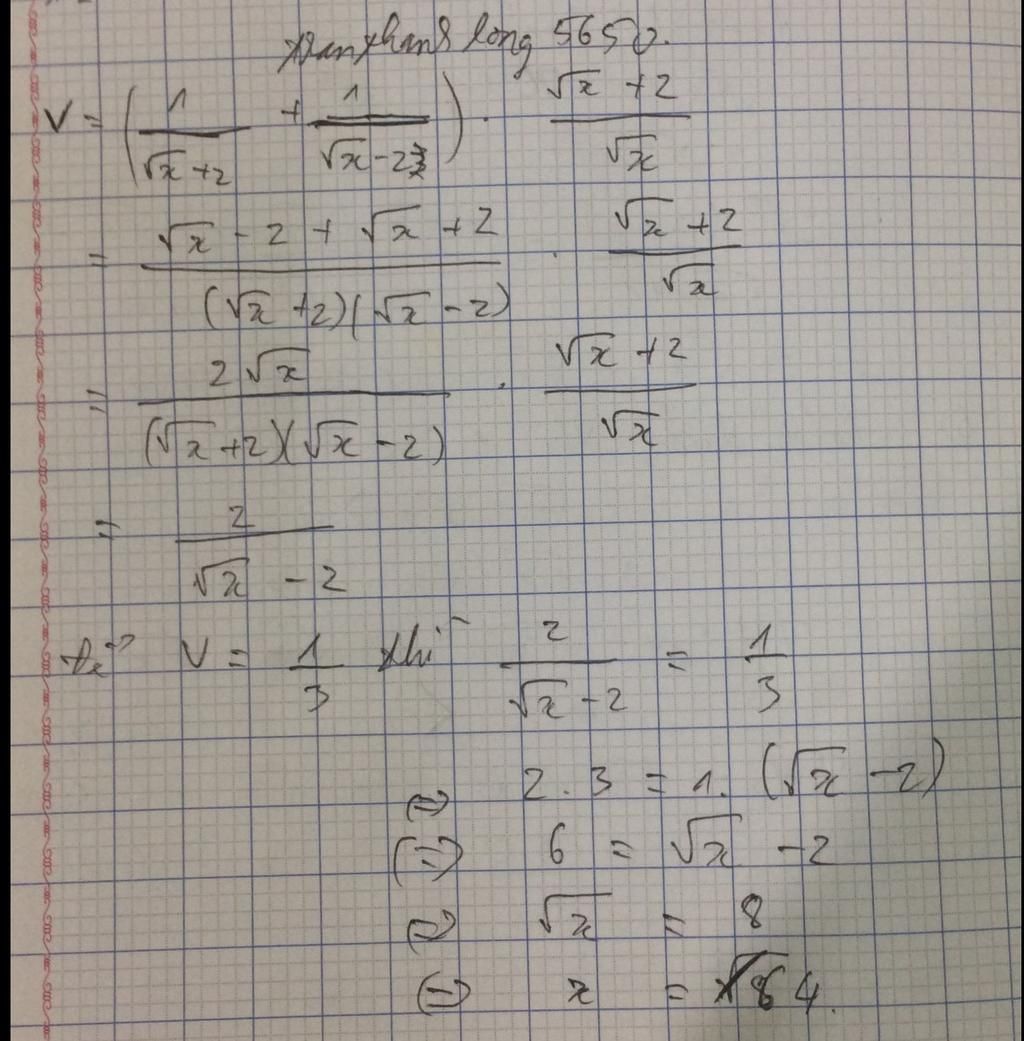 tranthanhlong5650.
V = (1/(√x + 2) + 1/(√x - 2)) . (√x + 2)/√x
= (√x - 2 + √x + 2)/((√x + 2)(√x - 2)) . (√x + 2)/√x
= 2√x/((√x + 2)(√x - 2)) . (√x + 2)/√x
= 2/(√x - 2)
để V = 1/3 thì 2/(√x - 2) = 1/3
⇔ 2.3 = 1.(√x - 2)
⇔ 6 = √x - 2
⇔ √x = 8
⇔ x = 64.